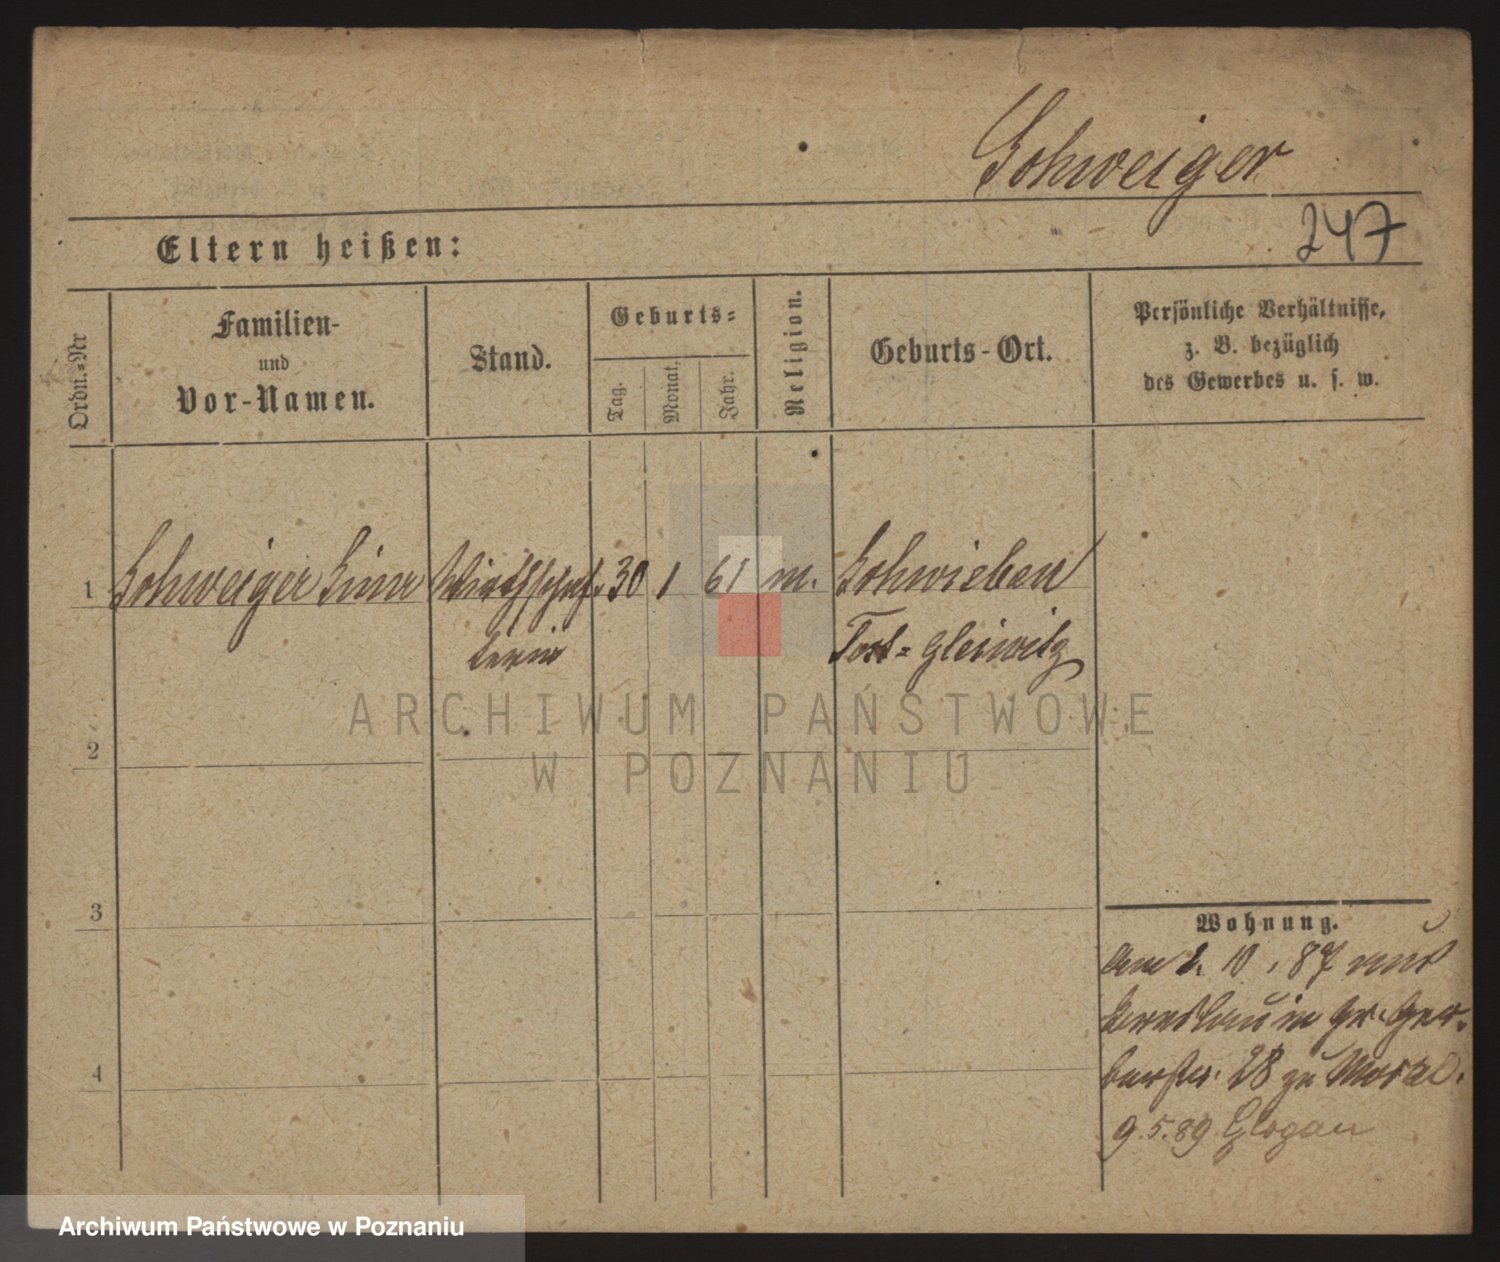 Schweiger
247
Eltern heißen:
Ordn.-Nr
Familien-
und
Vor-Namen.
Stand.
Geburts-
Tag.
Monat.
Jahr.
Religion.
Geburts-Ort.
Persönliche Verhältnisse,
z. B. bezüglich
des Gewerbes u. s. w.
1 Schweiger Wirthschaf- 30 1 61 m. Schwieben
terin Tost-Gleiwitz
2
3
4
Wohnung.
Am 2. 10. 87 aus
Breslau in Gr. Ger-
berstr. 28 zu
9.5.89 Glogau
ARCHIWUM PAŃSTWOWE
W POZNANIU
Archiwum Państwowe w Poznaniu